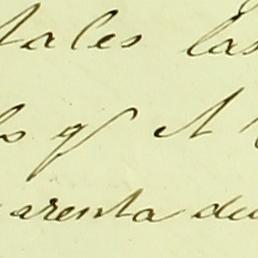 tales las
os qe A
arenta de